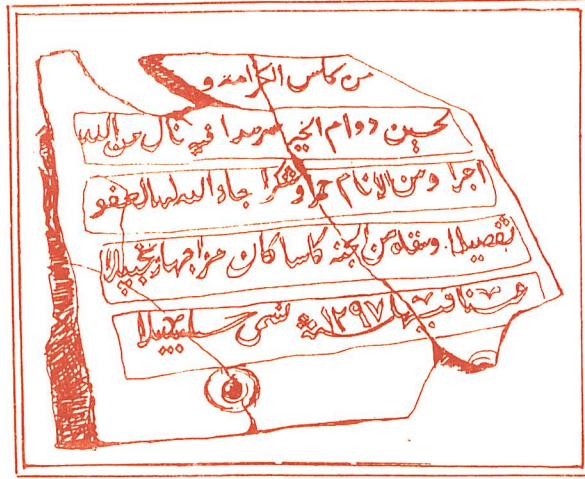 من كاس الكرامة و
لحسين دوام الخير سرمدا فيه نال من الله
اجرا ومن الانام حمدا وشكرا جاد الله لها العفو
تفضيلا وسقاه من الجنه كاسا كان مزاجها زنجبيلا
عينا فيها سنة ١٢٩٧ تسمى سلسبيلا